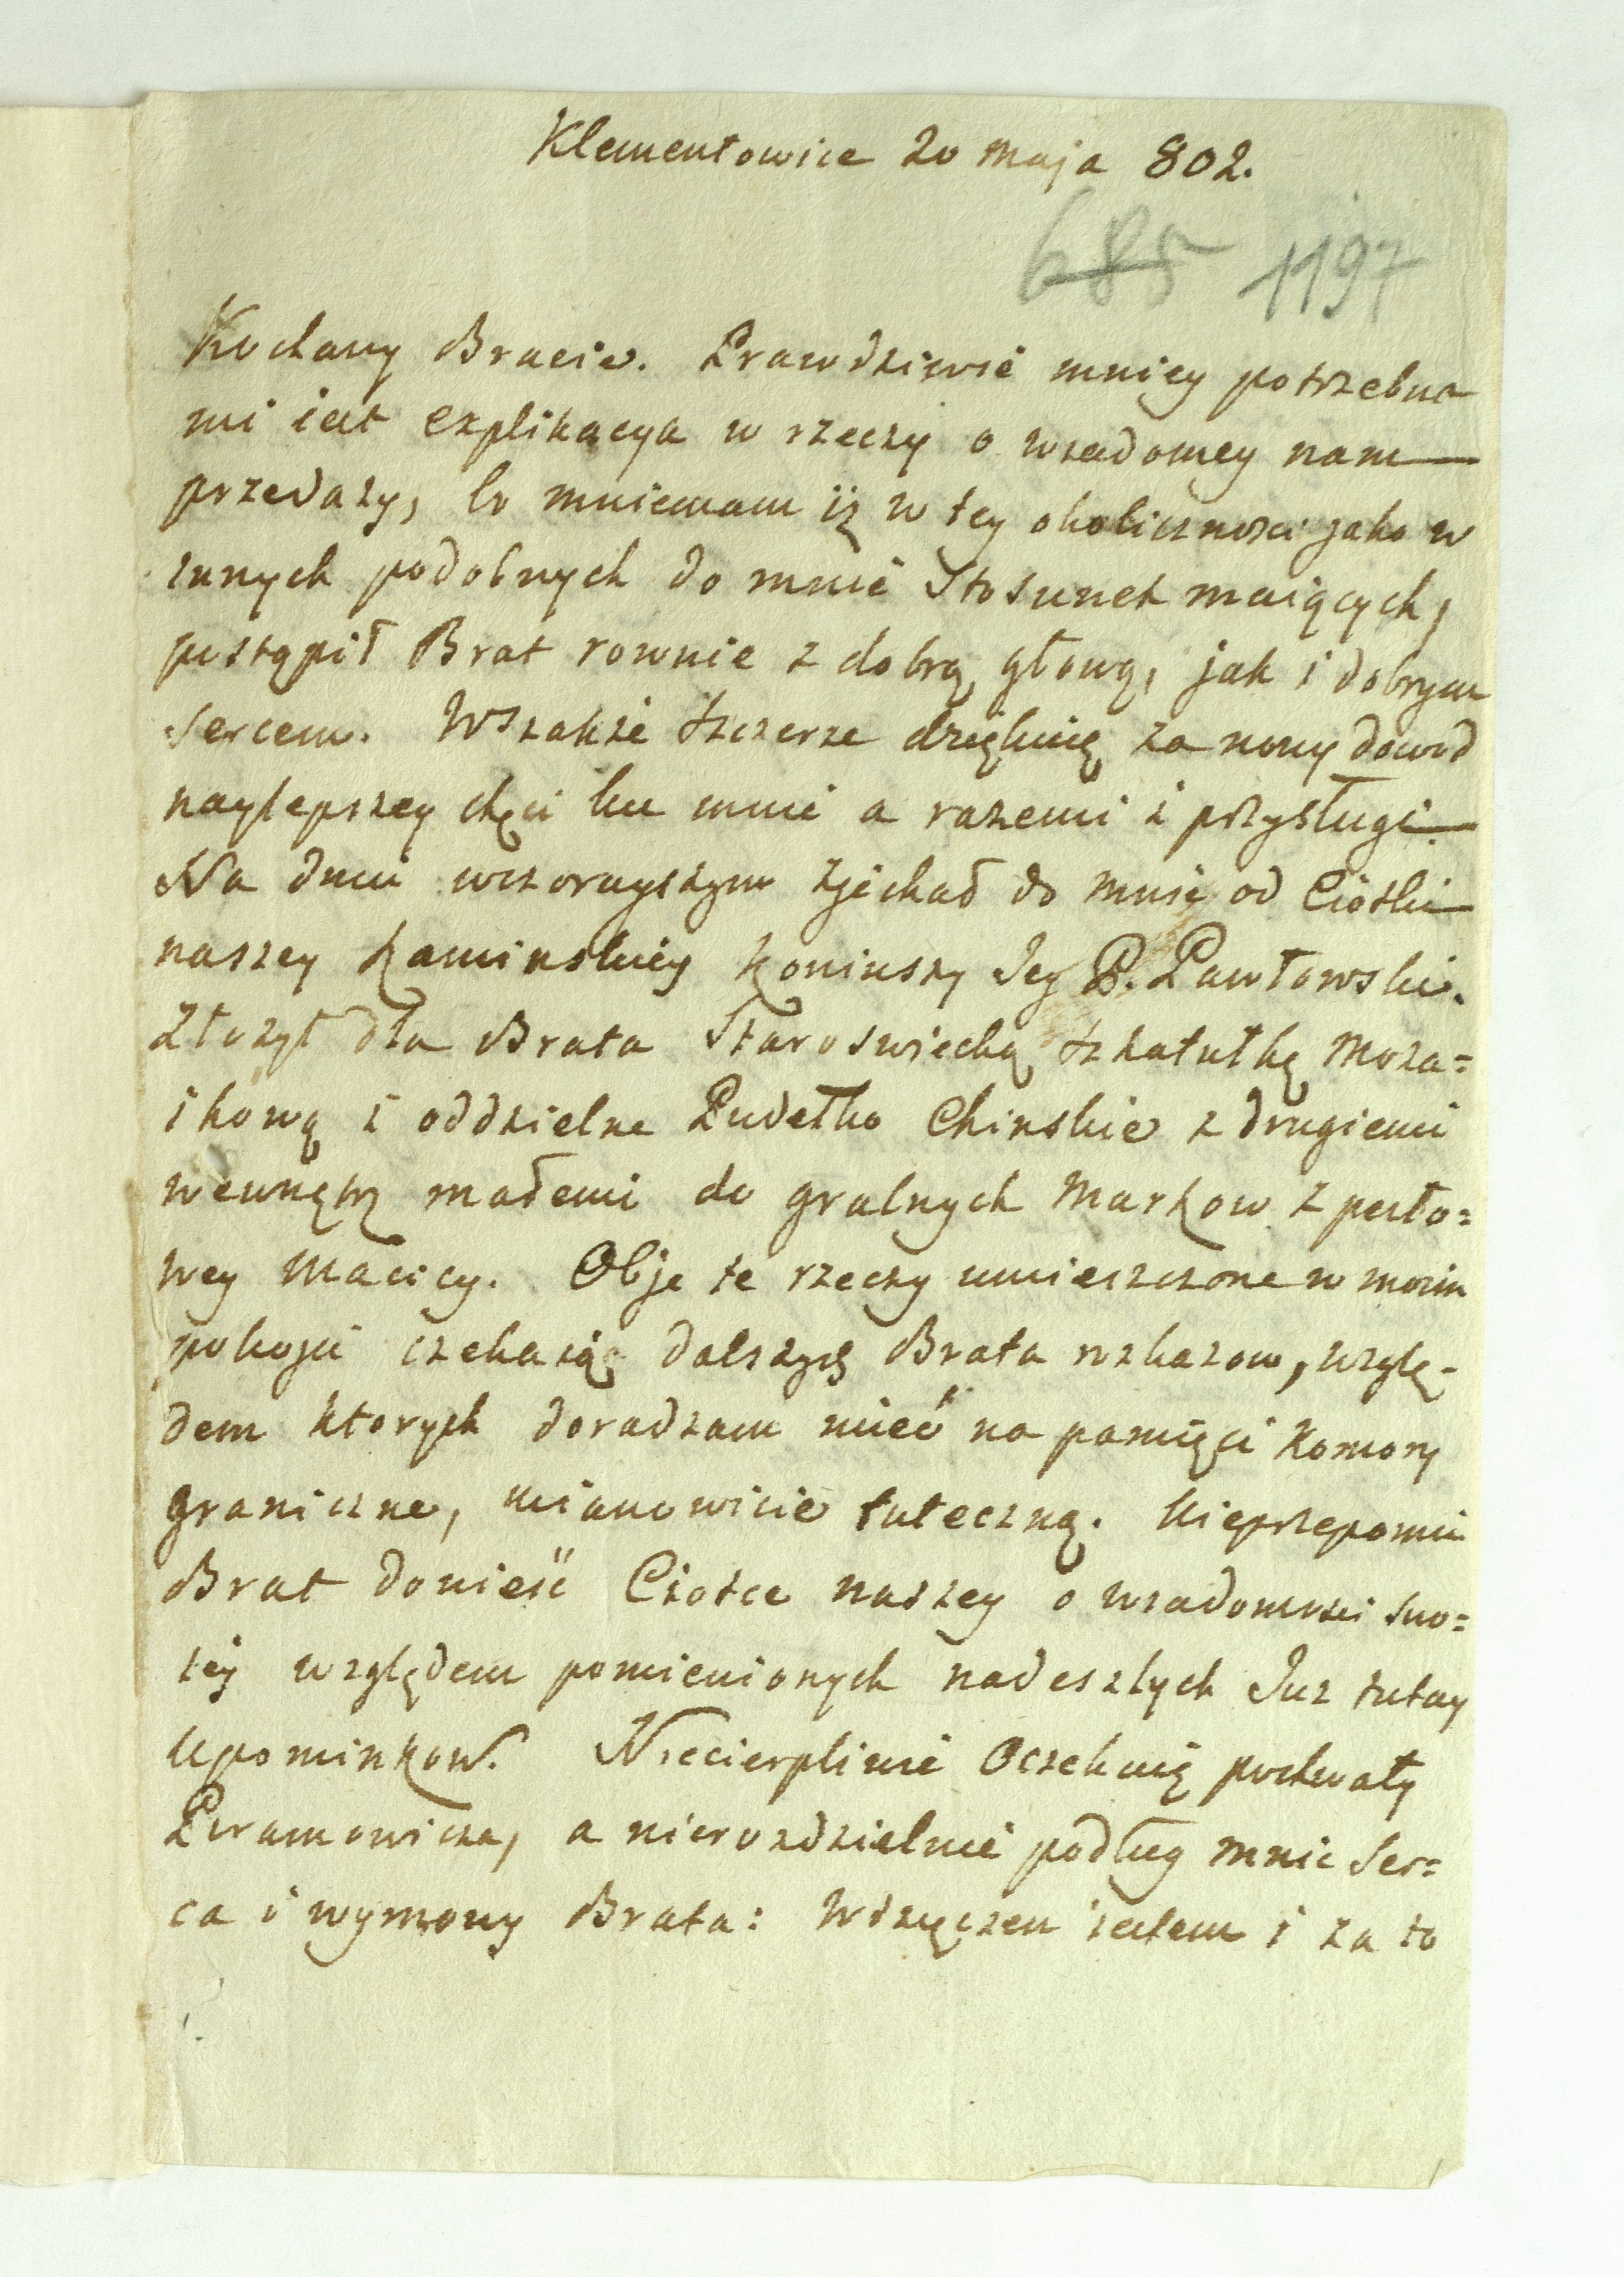 Klementowice 20 maja 802.
685 1197
Kochany Bracie. Prawdziwie mniey potrzebna
mi iest explikacya w rzeczy o wiadomey nam
przedaży, bo mniemam iż w tey okoliczności jako w
innych podobnych do mnie Stosunek maiących,
postąpił Brat rownie z dobrą głową, jak i dobrym
sercem. Wszakże szczerze dziękuię za nowy dowod
naylepszey chęci ku mnie a razem i przysługi.
Na dniu wczorayszym zjechał do mnie od Ciotki
naszey Kaminskiey Koniuszy Jey P. Pawłowski.
Złożył dla Brata Staroswiecką szkatułkę moza=
ikową i oddzielne Pudełko Chinskie z drugiemi
wewnątrz małemi do gralnych Markow z perło=
wey Macicy. Obje te rzeczy umieszczone w moim
pokoju czekaią dalszych Brata rozkazow, wzglę-
dem ktorych doradzam mieć na pamięci Komory
graniczne, mianowicie tuteczną. Nieprzepomni
Brat donieść Ciotce naszey o wiadomości swo=
iey względem pomienionych nadeszłych Juz tutay
Upominkow. Niecierpliwie Oczekuię pochwały
Piramowicza, a nierozdzielnie podług mnie Ser=
ca i wymowy Brata: Wdzięczen iestem i za to